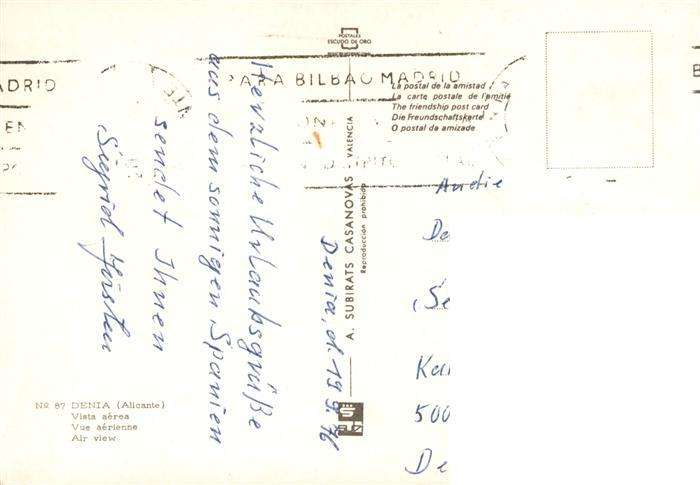 POSTALES
ESCUDO DE ORO
PARA BILBAO MADRID
ADRID
B
La postal de la amistad
La carte postale de l'amitié
The friendship post card
Die Freundschaftskarte
O postal da amizade
A. SUBIRATS CASANOVAS - VALENCIA
Reproducción prohibida
Denia, d. 19.9.76
Herzliche Urlaubsgrüße
aus dem sonnigen Spanien
sendet Ihnen
Sigrid
An die
De
Se
Kai
500
De
Nº 87 DENIA (Alicante)
Vista aérea
Vue aérienne
Air view